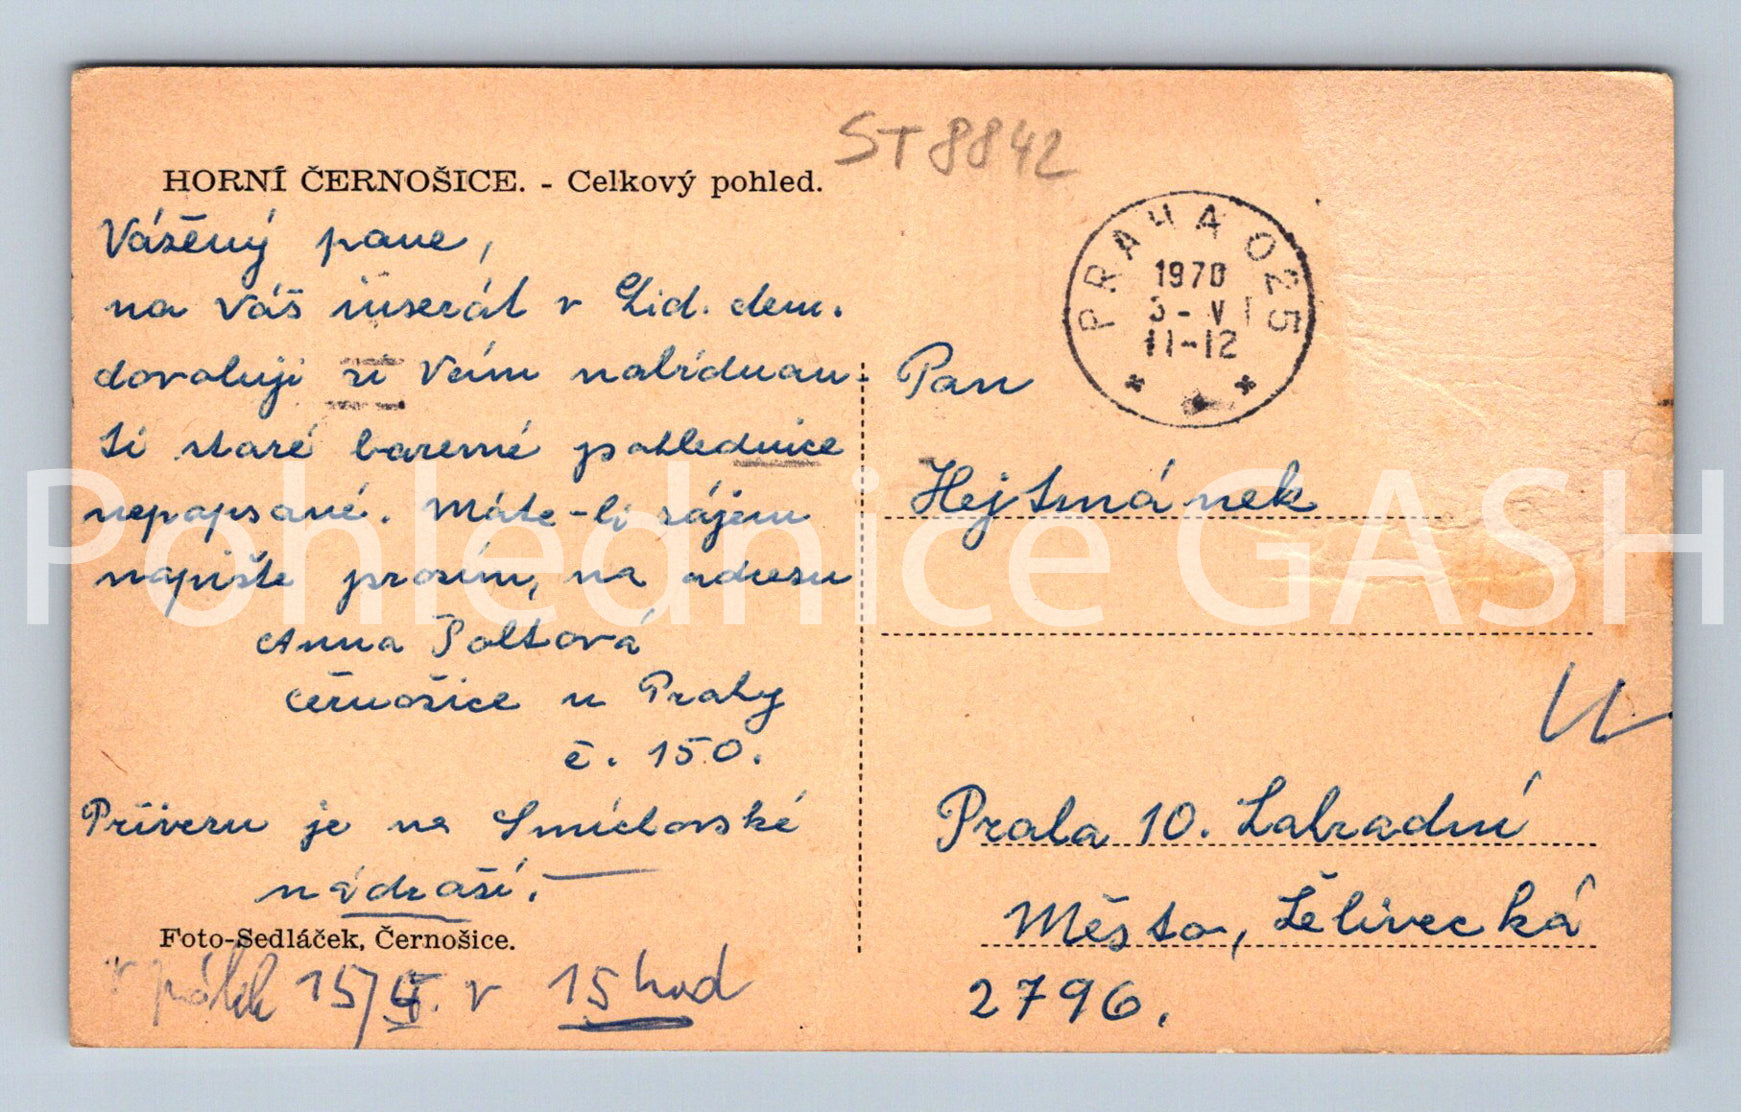 ST 8842
HORNÍ ČERNOŠICE. - Celkový pohled.
Vážený pane,
na Váš inserát v Lid. dem.
dovoluji si Vám nabídnou-
ti staré barevné pohlednice
nepopsané. Máte-li zájem
napište prosím, na adresu
Anna Poltová
Černošice u Prahy
č. 150.
Příveru je na Smíchovské
nádraží.
Foto-Sedláček, Černošice.
v pátek 15/5. v 15 hod
PRAHA 025
1970
3-VI
11-12
Pan
Hejtmánek
Praha 10. Zahradní
Město, Želivecká
2796.
Pohlednice GASH